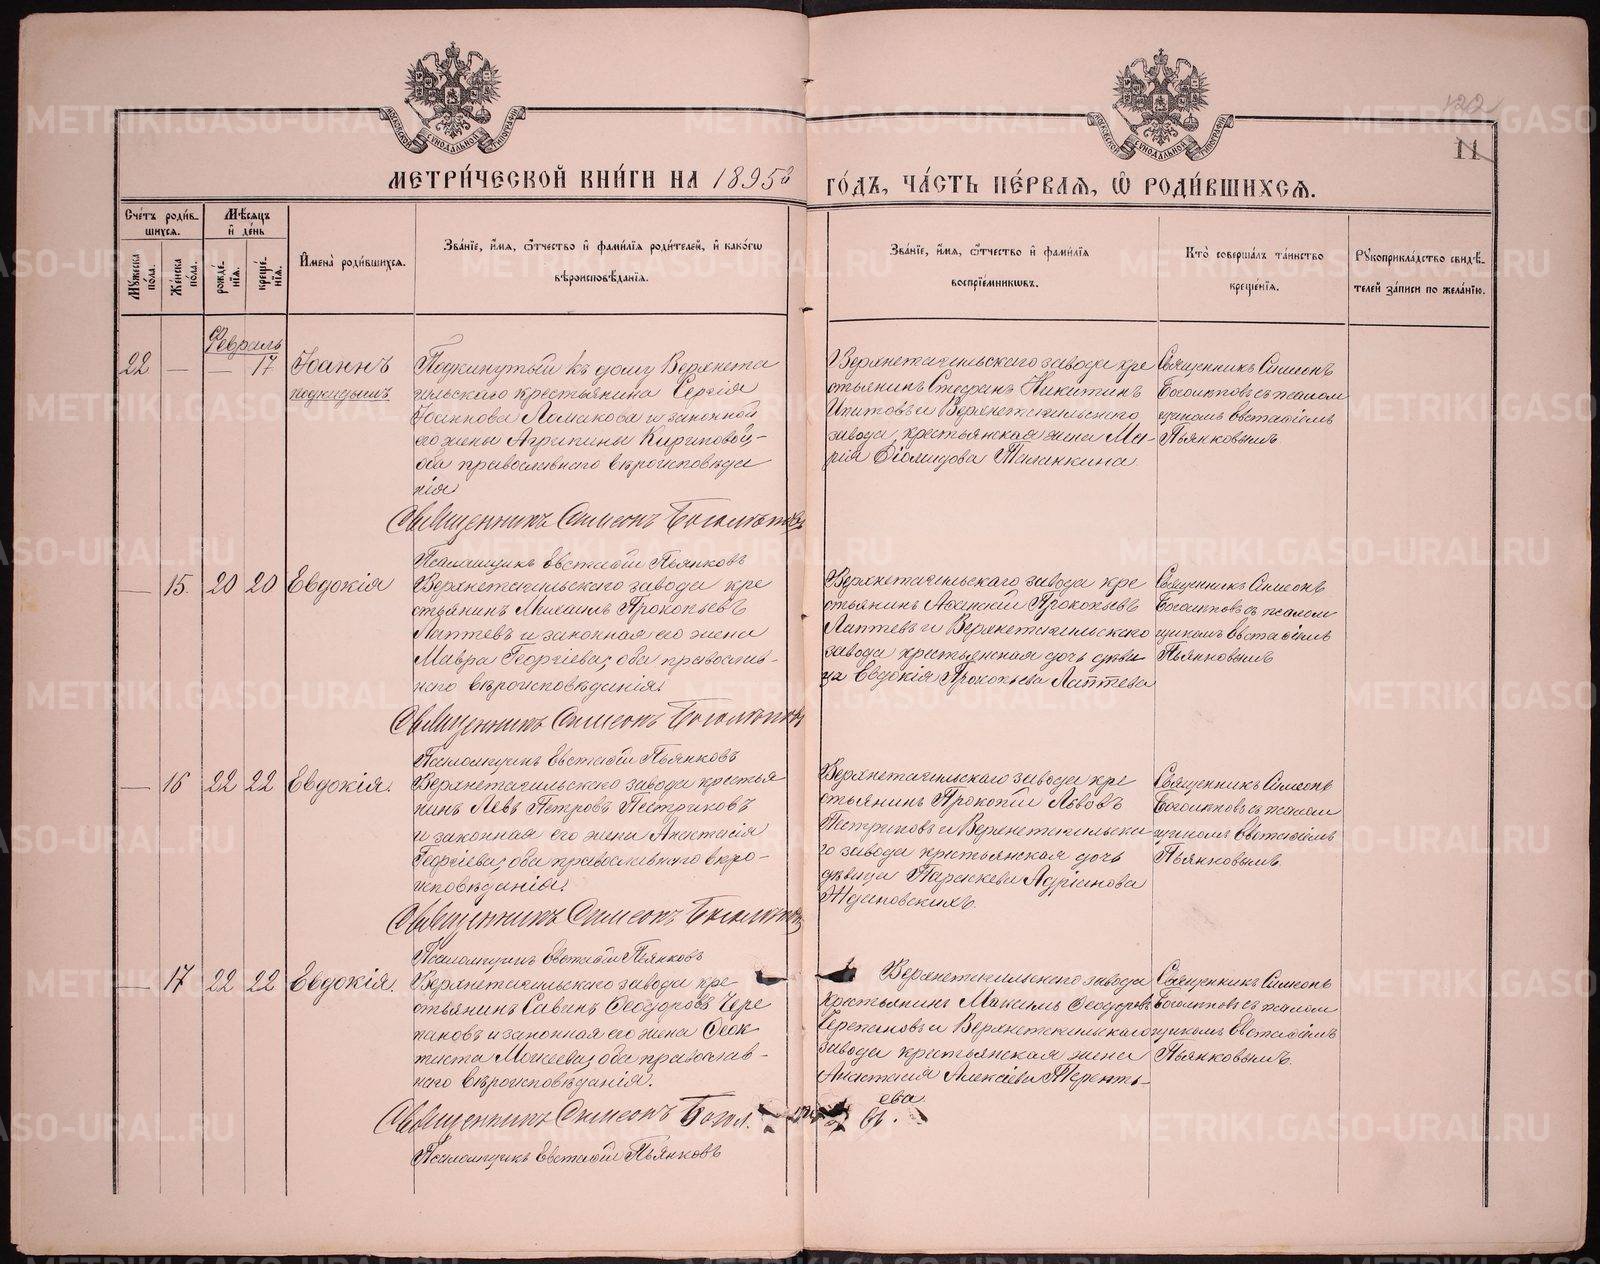 122
11
МЕТРИ́ЧЕСКОЙ КНИ́ГИ НА 1895й ГО́ДЪ, ЧА́СТЬ ПЕ́РВАѦ, Ѡ РОДИ́ВШИХСѦ.
Сче́тъ роди́вшихся.
Му́жеска по́ла.
Же́нска по́ла.
Мѣ́сяцъ и де́нь
рожде́нїя.
креще́нїя.
Имена̀ роди́вшихся.
Зва́нїе, и́мя, ѻ́тчество и фами́лїя роди́телей, и како́гѡ
вѣроисповѣ́данїя.
Зва́нїе, и́мя, ѻ́тчество и фами́лїя
воспрїе́мниковъ.
Кто̀ соверша́лъ та́инство
креще́нїя.
Рꙋкоприкла́дство свидѣ́-
телей за́писи по жела́нїю.
Февраль
22 — — 17 Іоаннъ
подкидышъ
Подкинутый къ дому Верхнета
гильскаго крестьянина Сергія
Іоаннова Ломакова и законной
его жены Агрипины Кириловой,-
оба православнаго вѣроисповѣда
нія
Священникъ Симеонъ Боголѣповъ
Псаломщикъ Евстафій Пьянковъ
Верхнетагильскаго завода кре
стьянинъ Стефанъ Никитинъ
Ипатовъ и Верхнетагильскаго
завода крестьянская жена Ма-
рія Таланкина
Священникъ Симеонъ
Боголѣповъ съ псалом
щикомъ Евстафіемъ
Пьянковымъ
— 15. 20 20 Евдокія
Верхнетагильскаго завода кре
стьянинъ Михаилъ Прокопьевъ
Лаптевъ и законная его жена
Мавра Георгіева, оба православ-
наго вѣроисповѣданія.
Священникъ Симеонъ Боголѣповъ
Псаломщикъ Евстафій Пьянковъ
Верхнетагильскаго завода кре
стьянинъ Афанасій Прокопьевъ
Лаптевъ и Верхнетагильскаго
завода крестьянская дочь дѣви
ца Евдокія Прокопьева Лаптева
Священникъ Симеонъ
Боголѣповъ съ псалом
щикомъ Евстафіемъ
Пьянковымъ
— 16 22 22 Евдокія.
Верхнетагильскаго завода крестья
нинъ Левъ Петровъ Пестриковъ
и законная его жена Анастасія
Георгіева, оба православнаго вѣро-
исповѣданія.
Священникъ Симеонъ Боголѣповъ
Псаломщикъ Евстафій Пьянковъ
Верхнетагильскаго завода кре
стьянинъ Прокопій Львовъ
Пестриковъ и Верхнетагильска
го завода крестьянская дочь
дѣвица Параскева Адріанова
Ждановскихъ.
Священникъ Симеонъ
Боголѣповъ съ псалом
щикомъ Евстафіемъ
Пьянковымъ
— 17 22 22 Евдокія.
Верхнетагильскаго завода кре
стьянинъ Савинъ Феодоровъ Чере
пановъ и законная его жена Феок
тиста Моисеева, оба православ-
наго вѣроисповѣданія.
Священникъ Симеонъ Богол.
Псаломщикъ Евстафій Пьянковъ
Верхнетагильскаго завода
крестьянинъ Максимъ Феодоровъ
Черепановъ и Верхнетагильскаго
завода крестьянская жена
Анастасія Алексіева Теренть-
ева
Священникъ Симеонъ
Боголѣповъ съ псалом
щикомъ Евстафіемъ
Пьянковымъ.
METRIKI.GASO-URAL.RU